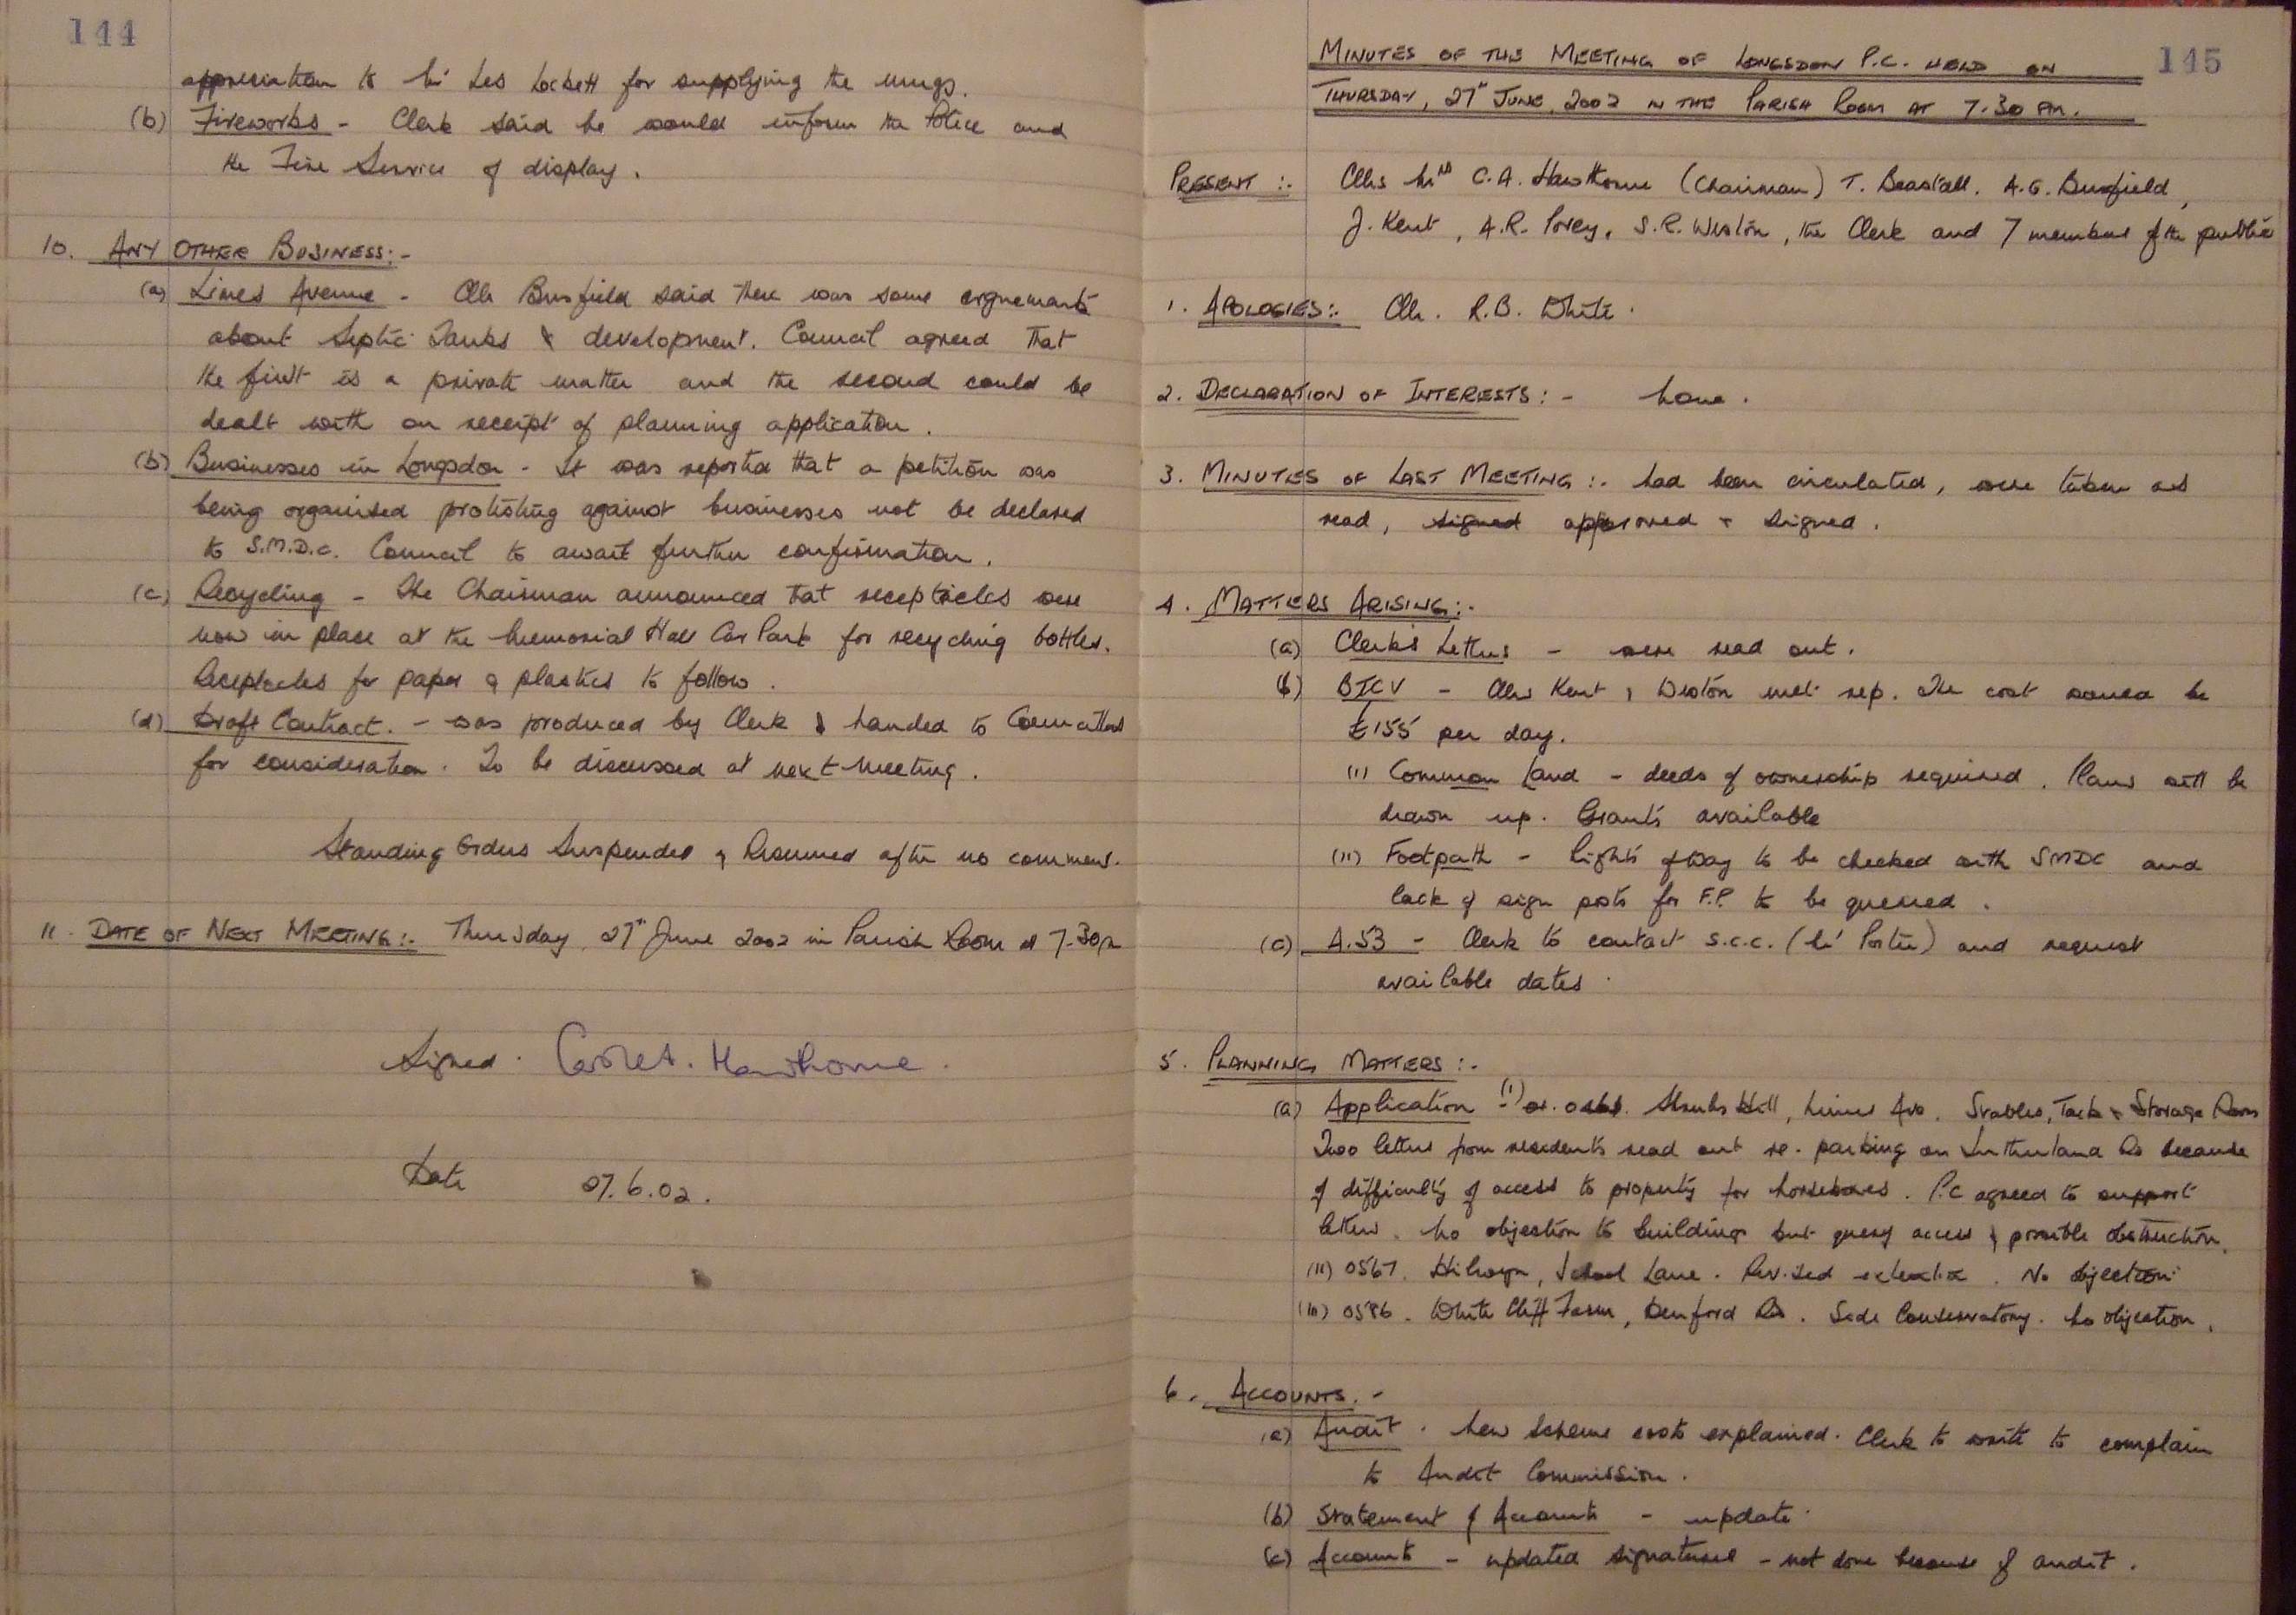 144
appreciation to Mr Les Lockett for supplying the mugs.
(b) Fireworks - Clerk said he would inform the Police and
the Fire Service of display.
10. ANY OTHER BUSINESS:-
(a) Limes Avenue - Cllr Busfield said there was some arguements
about Septic Tanks & development. Council agreed that
the first is a private matter and the second could be
dealt with on receipt of planning application.
(b) Businesses in Longsdon - It was reported that a petition was
being organised protesting against businesses not be declared
to S.M.D.C. Council to await further confirmation.
(c) Recycling - The Chairman announced that recepticles were
now in place at the Memorial Hall Car Park for recycling bottles.
Receptacles for paper & plastics to follow.
(d) Draft Contract. - was produced by Clerk & handed to Councillors
for consideration. To be discussed at next meeting.
Standing Orders Suspended & Resumed after no comment.
11. DATE OF NEXT MEETING:- Thursday, 27th June 2002 in Parish Room at 7.30pm
Signed. Carole A. Hawthorne.
Date 27.6.02.
MINUTES OF THE MEETING OF LONGSDON P.C. HELD ON
145
THURSDAY, 27th JUNE, 2002 IN THE PARISH ROOM AT 7.30 PM.
PRESENT :- Cllrs Mrs C.A. Hawthorne (Chairman) T. Beastall. A.G. Busfield,
J. Kent, A.R. Povey, S.R. Weston, the Clerk and 7 members of the public
1. APOLOGIES:- Cllr. R.B. White.
2. DECLARATION OF INTERESTS:- None.
3. MINUTES OF LAST MEETING:- had been circulated, were taken as
read, signed approved & signed.
4. MATTERS ARISING:-
(a) Clerk's Letters - were read out.
(b) BTCV - Cllrs Kent & Weston met rep. The cost would be
£155 per day.
(i) Common Land - deeds of ownership required. Plans will be
drawn up. Grants available
(ii) Footpath - Rights of Way to be checked with SMDC and
lack of sign posts for F.P. to be queried.
(c) A.53 - Clerk to contact S.C.C. (Mr Porter) and request
available dates.
5. PLANNING MATTERS:-
(a) Application - (i) Hill, Limes Ave. Stables, Tack & Storage Room
Two letters from residents read out re. parking on Sutherland Rd because
of difficulty of access to property for horseboxes. P.C agreed to support
letters. No objection to buildings but query access & possible obstruction.
(ii) 0567. School Lane. Revised extension. No objection.
(iii) 0586. White Cliff Farm, Denford Rd. Side Conservatory. No objection.
6. ACCOUNTS.-
(a) Audit. New Scheme costs explained. Clerk to write to complain
to Audit Commission.
(b) Statement of Accounts - update.
(c) Accounts - updated signatures - not done because of audit.